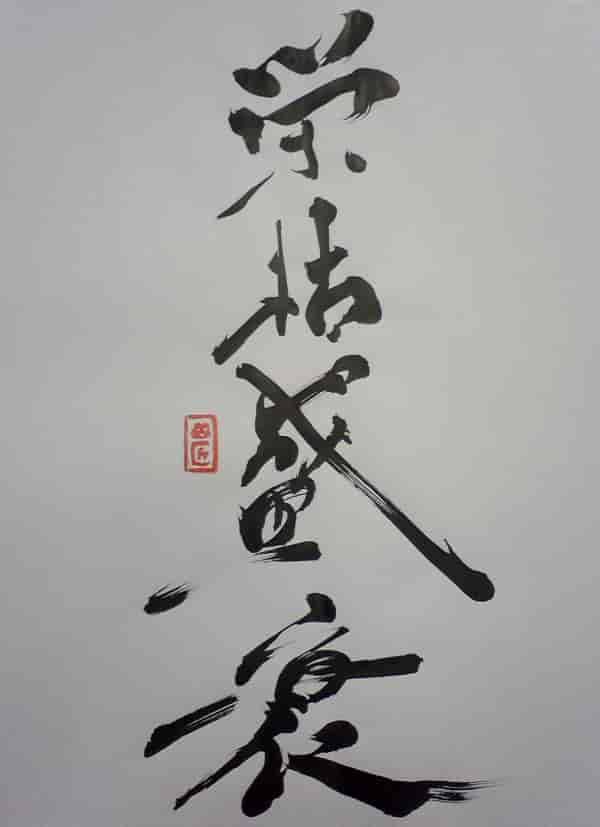 栄枯盛衰